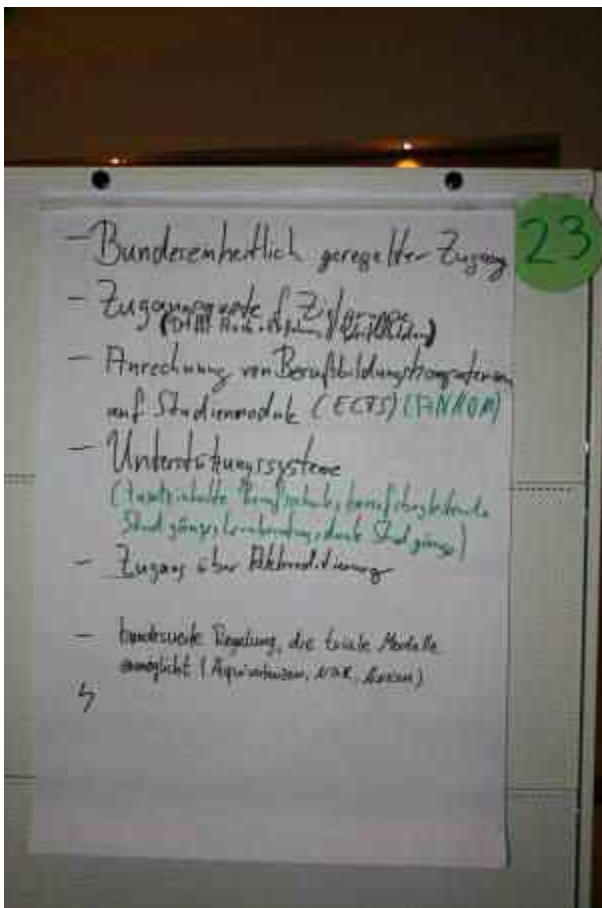 23
- Bundeseinheitlich geregelter Zugang
- Zugangsquote f. Zielgruppe
- Anrechnung von Berufsbildungskompetenzen
auf Studienmodule (ECTS) (ANKOM)
- Unterstützungssysteme
(Zusatzinhalte Berufsschule, berufsbegleitende
Studgänge, Lernberatung, duale Studgänge)
- Zugang über Akkreditierung
- bundesweite Regelung, die lokale Modelle
ermöglicht (Äquivalenzen, NQR,